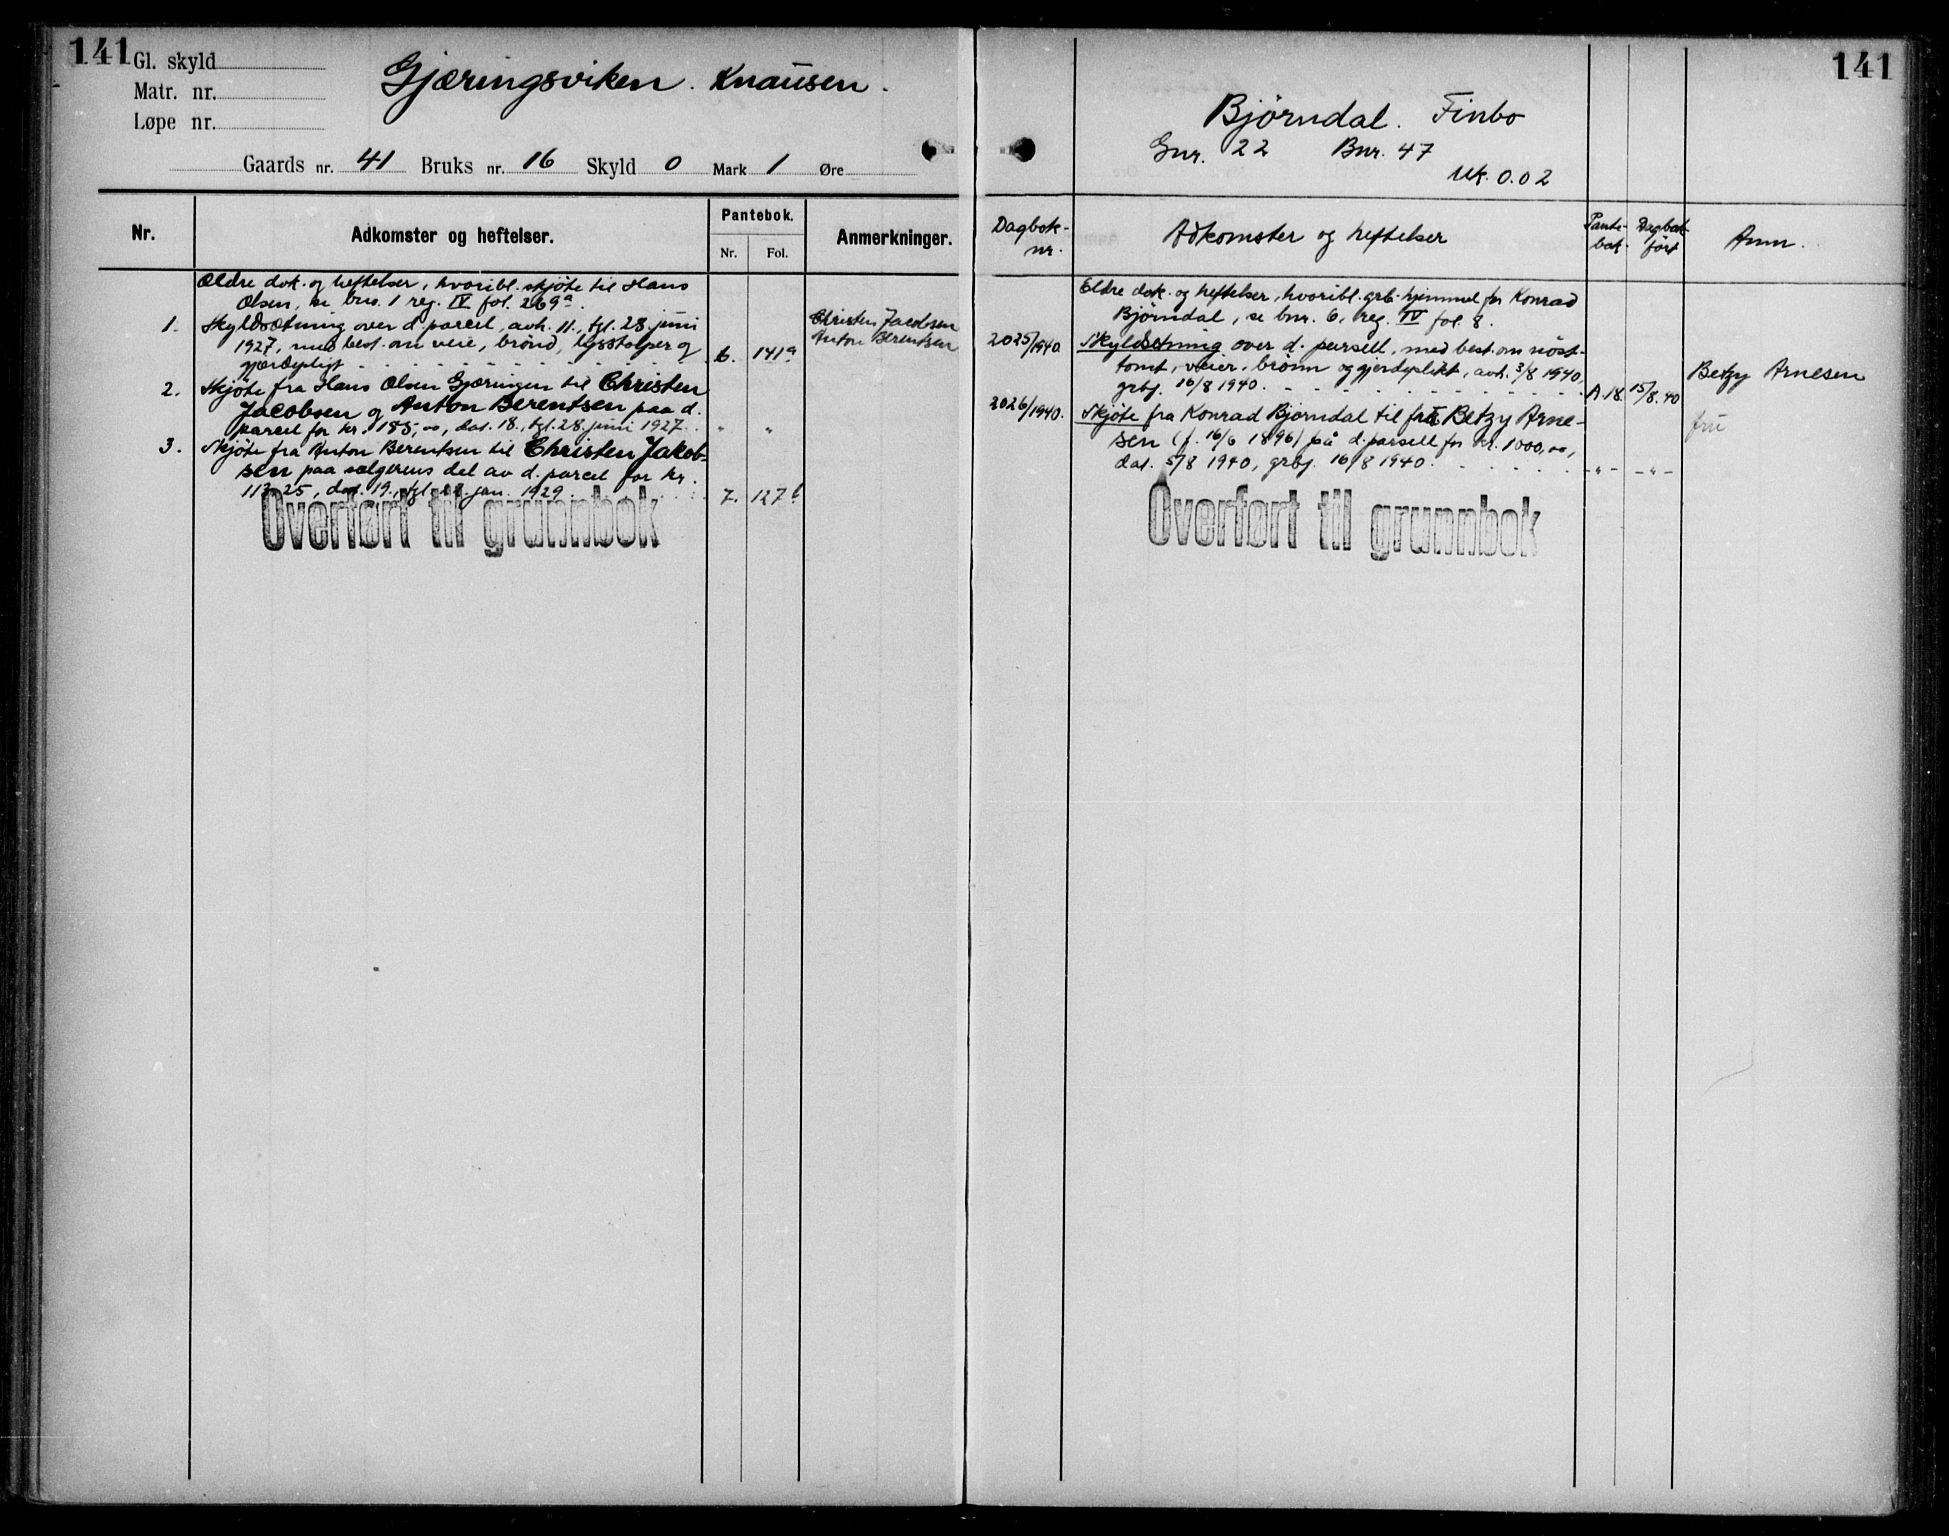 141
Gl. skyld
Matr. nr.
Løpe nr.
Gjæringsviken. Knausen.
Gaards nr. 41 Bruks nr. 16 Skyld 0 Mark 1 Øre
Nr.
Adkomster og heftelser.
Pantebok.
Nr. Fol.
Anmerkninger.
Ældre dok. og heftelser, hvoribl. skjøte til Hans
Olsen, se bno. 1 reg. IV fol. 269a.
1. Skyldsætning over d. parcel, avh. 11., tgl. 28 juni
1927, med best. om veie, brønd, lysstolper og
gjærdepligt 6. 141a
Christen Jacobsen
Anton Berentsen
2. Skjøte fra Hans Olsen Gjæringen til Christen
Jacobsen og Anton Berentsen paa d.
parcel for kr. 185,00, dat. 18., tgl. 28. juni 1927. " "
3. Skjøte fra Anton Berentsen til Christen Jakob-
sen paa sælgerens del av d. parcel for kr.
113,25, dat. 19., tgl. jan. 1929. 7. 127b
Overført til grunnbok
141
Bjørndal. Finbo
Gnr. 22 Bnr. 47
Mk. 0.02
Dagbok-
nr.
Adkomster og heftelser
Pante-
bok.
Dagbok
ført
Anm.
Eldre dok. og heftelser, hvoribl. grb. hjemmel for Konrad
Bjørndal, se bnr. 6, reg. IV fol. 8.
2025/1940. Skyldsetning over d. parsell, med best. om nøst-
tomt, veier, brønn og gjerdeplikt, avh. 3/8 1940,
grbf. 16/8 1940. A.18. 15/8.40
Betzy Arnesen
fru
2026/1940. Skjøte fra Konrad Bjørndal til fru Betzy Arne-
sen (f. 16/6 1896) på d. parsell for kr. 1000,00,
dat. 5/8 1940, grbf. 16/8 1940. -"- -"-
Overført til grunnbok